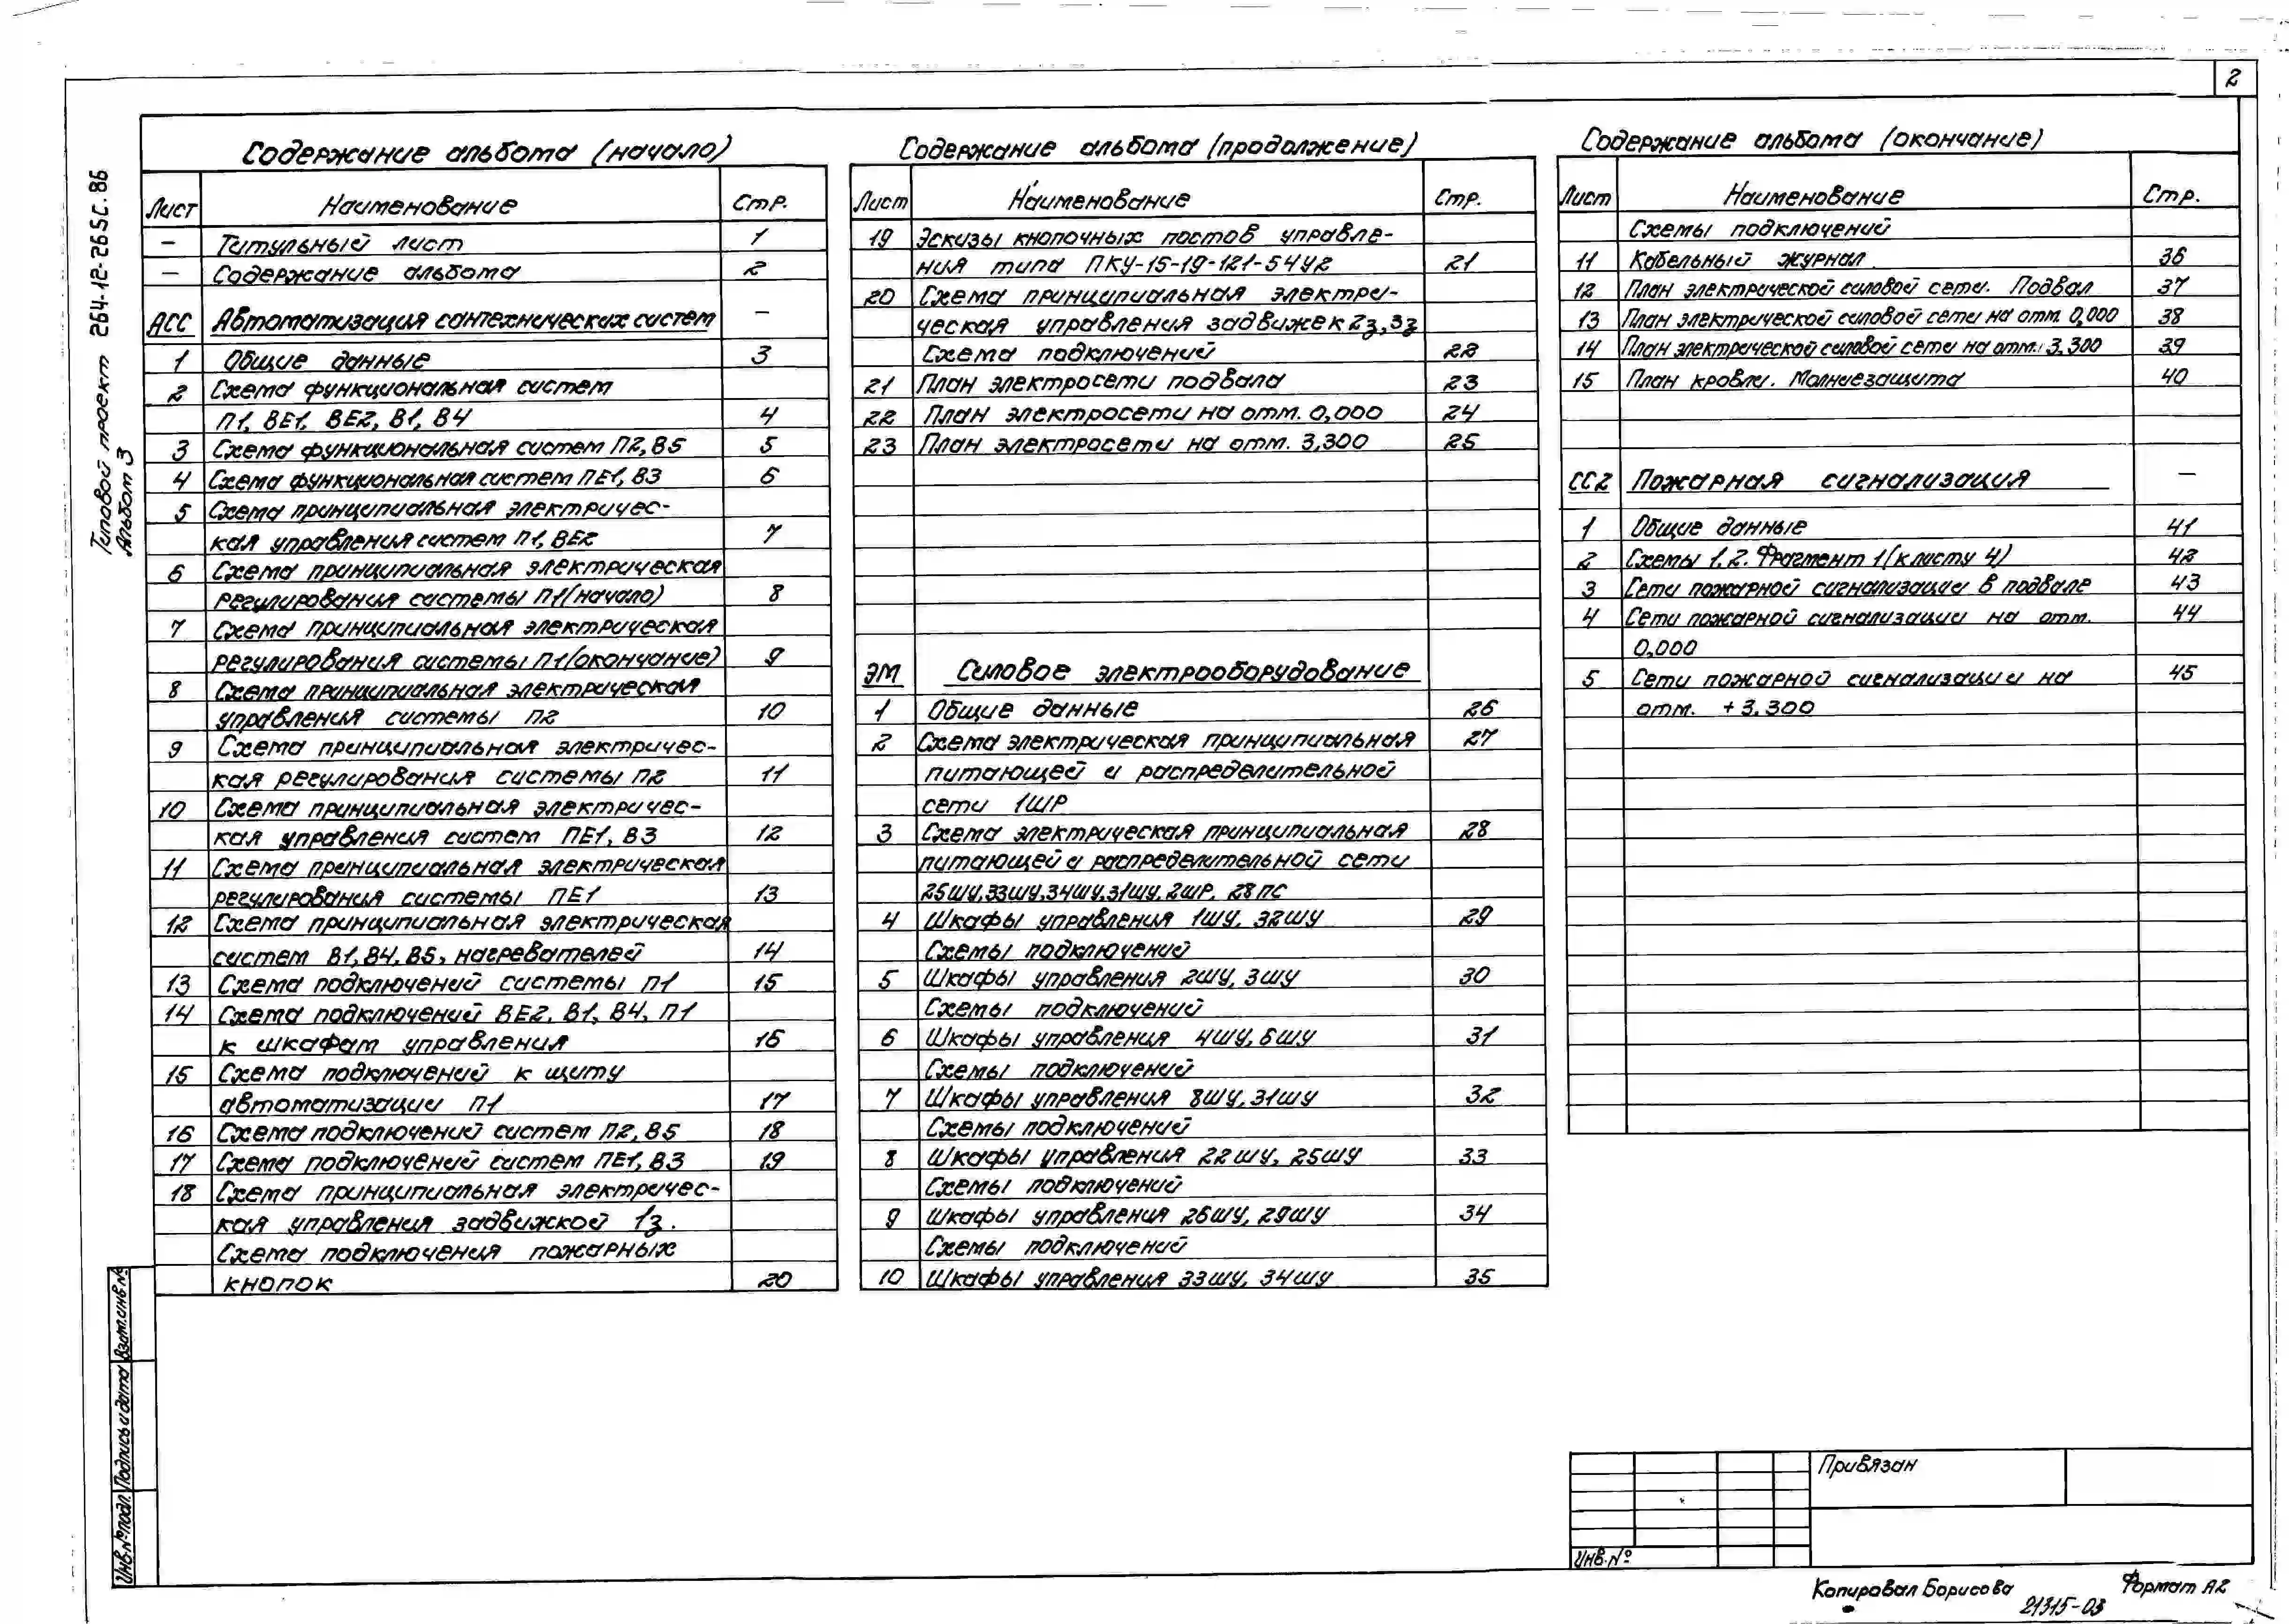 2
Типовой проект 264-12-265с.86
Альбом 3
Содержание альбома (начало)
Лист Наименование Стр.
— Титульный лист 1
— Содержание альбома 2
АСС Автоматизация сантехнических систем —
1 Общие данные 3
2 Схема функциональная систем
П1, ВЕ1, ВЕ2, В1, В4 4
3 Схема функциональная систем П2, В5 5
4 Схема функциональная систем ПЕ1, В3 6
5 Схема принципиальная электричес-
кая управления систем П1, ВЕ2 7
6 Схема принципиальная электрическая
регулирования системы П1 (начало) 8
7 Схема принципиальная электрическая
регулирования системы П1 (окончание) 9
8 Схема принципиальная электрическая
управления системы П2 10
9 Схема принципиальная электричес-
кая регулирования системы П2 11
10 Схема принципиальная электричес-
кая управления систем ПЕ1, В3 12
11 Схема принципиальная электрическая
регулирования системы ПЕ1 13
12 Схема принципиальная электрическая
систем В1, В4, В5, нагревателей 14
13 Схема подключений системы П1 15
14 Схема подключений ВЕ2, В1, В4, П1
к шкафам управления 16
15 Схема подключений к щиту
автоматизации П1 17
16 Схема подключений систем П2, В5 18
17 Схема подключений систем ПЕ1, В3 19
18 Схема принципиальная электричес-
кая управления задвижкой 1з.
Схема подключения пожарных
кнопок 20
Содержание альбома (продолжение)
Лист Наименование Стр.
19 Эскизы кнопочных постов управле-
ния типа ПКУ-15-19-121-54У2 21
20 Схема принципиальная электри-
ческая управления задвижек 2з, 3з
Схема подключений 22
21 План электросети подвала 23
22 План электросети на отм. 0,000 24
23 План электросети на отм. 3,300 25
ЭМ Силовое электрооборудование
1 Общие данные 26
2 Схема электрическая принципиальная 27
питающей и распределительной
сети 1ШР
3 Схема электрическая принципиальная 28
питающей и распределительной сети
25ШУ, 33ШУ, 34ШУ, 31ШУ, 2ШР, 28ПС
4 Шкафы управления 1ШУ, 32ШУ 29
Схемы подключений
5 Шкафы управления 2ШУ, 3ШУ 30
Схемы подключений
6 Шкафы управления 4ШУ, 6ШУ 31
Схемы подключений
7 Шкафы управления 8ШУ, 31ШУ 32
Схемы подключений
8 Шкафы управления 22ШУ, 25ШУ 33
Схемы подключений
9 Шкафы управления 26ШУ, 29ШУ 34
Схемы подключений
10 Шкафы управления 33ШУ, 34ШУ 35
Содержание альбома (окончание)
Лист Наименование Стр.
Схемы подключений
11 Кабельный журнал 36
12 План электрической силовой сети. Подвал 37
13 План электрической силовой сети на отм. 0,000 38
14 План электрической силовой сети на отм. 3,300 39
15 План кровли. Молниезащита 40
СС2 Пожарная сигнализация —
1 Общие данные 41
2 Схемы 1, 2. Фрагмент 1 (к листу 4) 42
3 Сети пожарной сигнализации в подвале 43
4 Сети пожарной сигнализации на отм. 44
0,000
5 Сети пожарной сигнализации на 45
отм. +3,300
Инв.№ подл. Подпись и дата Взам.инв.№
Привязан
Инв.№
Копировал Борисова Формат А2
21315-03